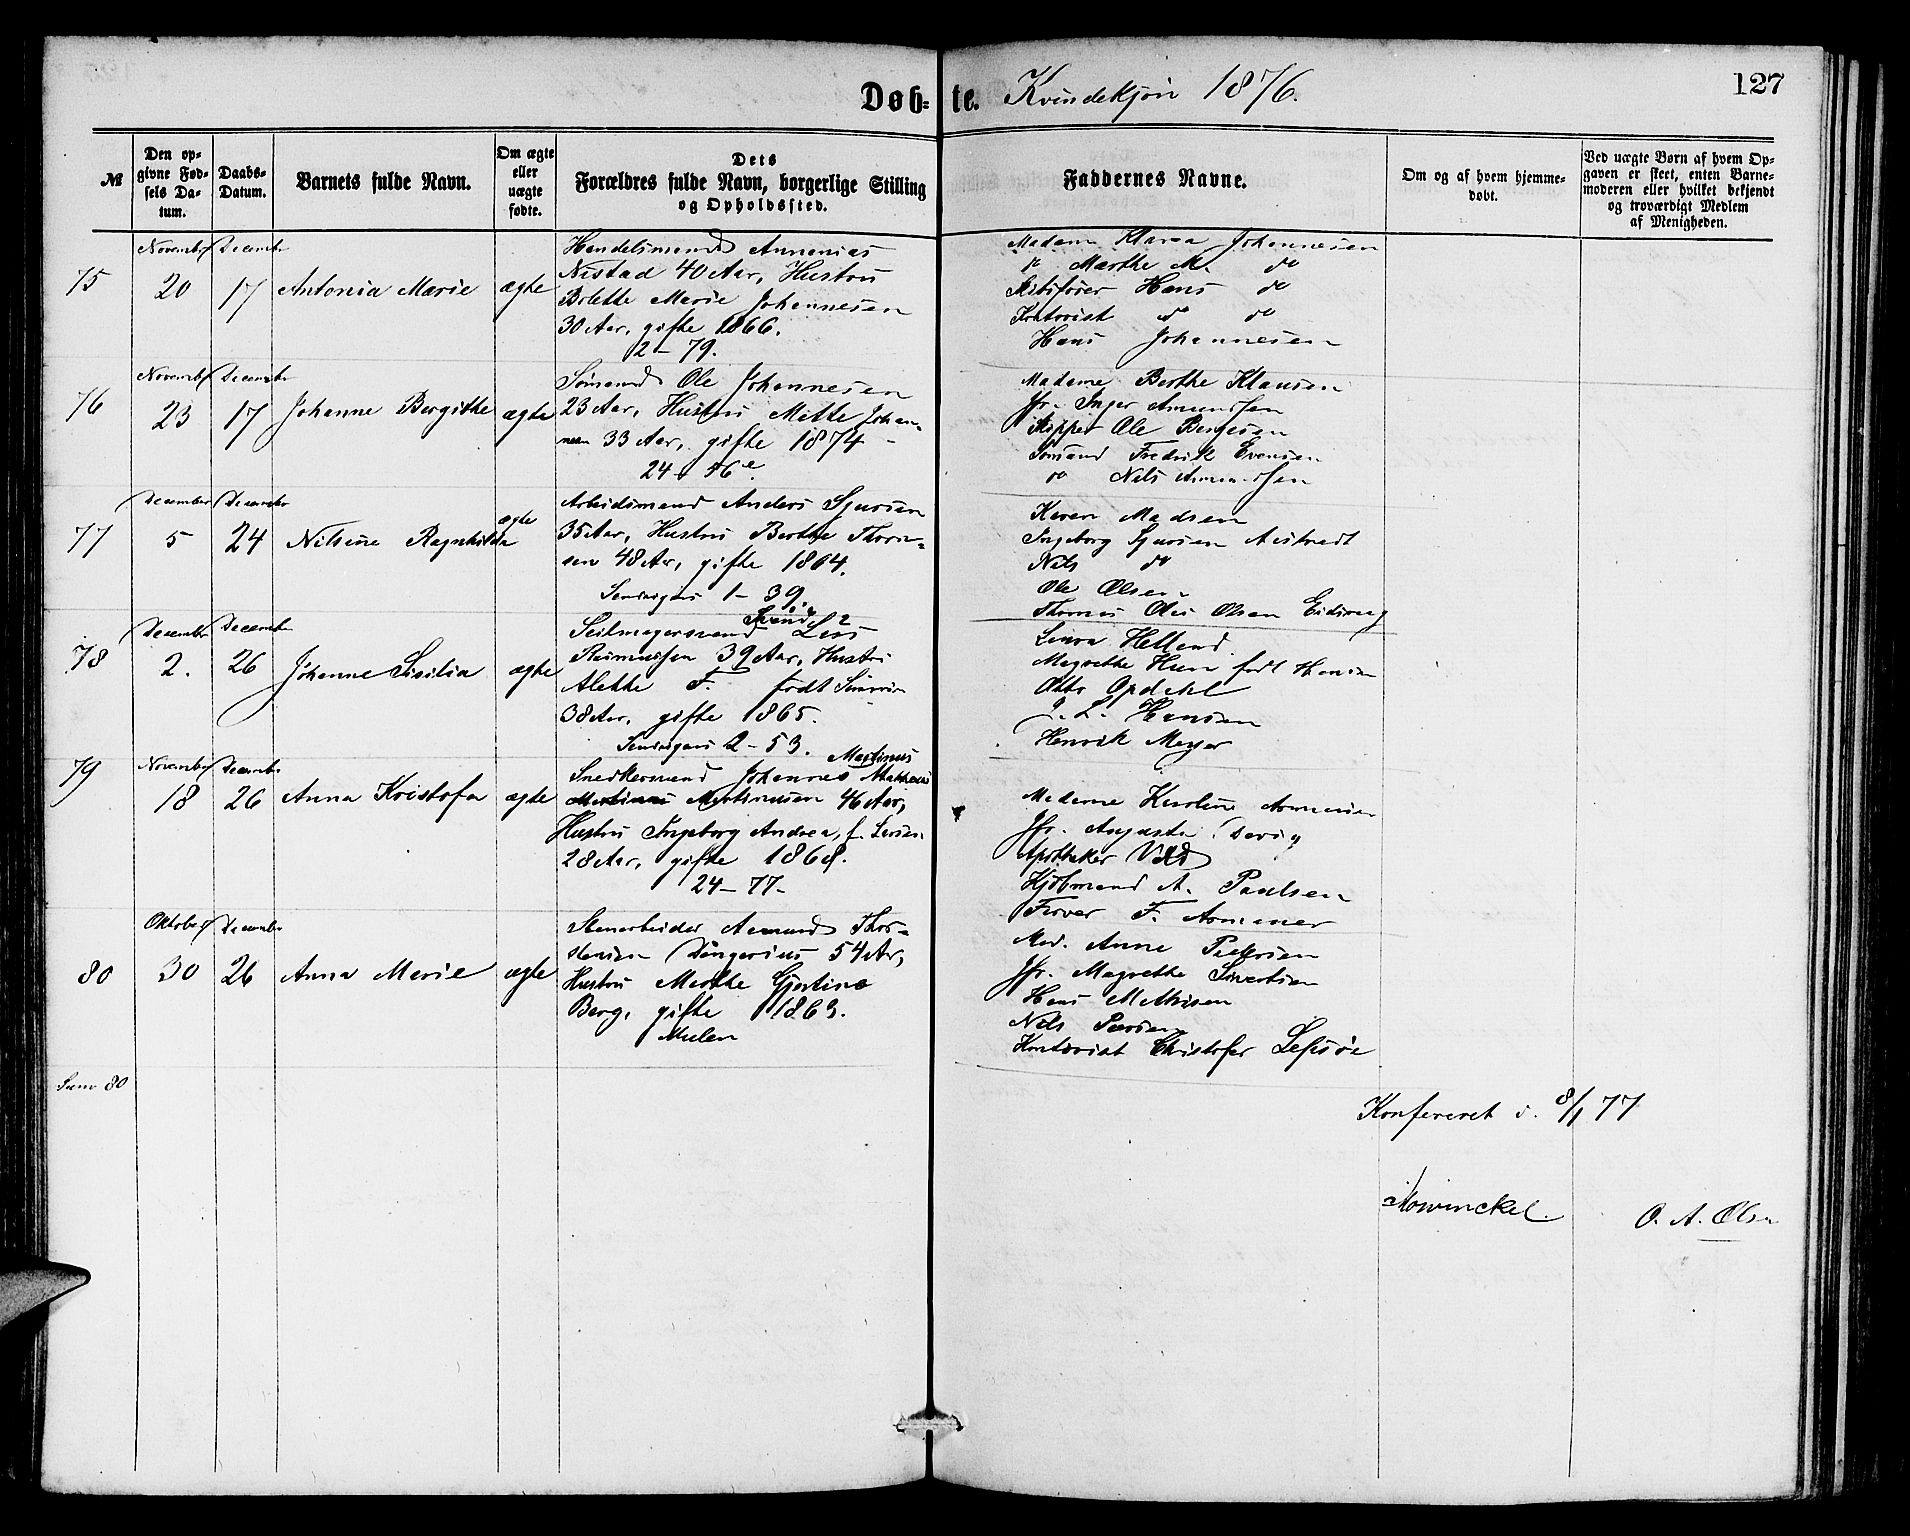 Døb-te. Kvindekjøn 1876.
127
№
Den op-
givne Fød-
sels Da-
tum.
Daabs-
Datum.
Barnets fulde Navn.
Om ægte
eller
uægte
fødte.
Dets
Forældres fulde Navn, borgerlige Stilling
og Opholdssted.
Faddernes Navne.
Om og af hvem hjemme-
døbt.
Ved uægte Børn af hvem Op-
gaven er skeet, enten Barne-
moderen eller hvilket bekjendt
og troværdigt Medlem
af Menigheden.
75
November
20
December
17
Antonia Marie
ægte
Handelsmand Annanias
Nestad 40 Aar, Hustru
Bolette Marie Johannesen
30 Aar, gifte 1866.
2-79.
Madam Klara Johannesen
do Marthe M. do
Hans do
Kontorist do do
Hans Johannesen
76
November
23
December
17
Johanne Bergithe
ægte
Sømand Ole Johannesen
23 Aar, Hustru Mette Johan-
nesen 33 Aar, gifte 1874 -
24-56
Madame Berthe Klausen
Jfr. Inger Amundsen
Skipper Ole Bergesen
Sømand Fredrik Evensen
do Nils Amundsen
77
December
5
December
24
Nilsine Ragnhilda
ægte
Arbeidsmand Anders Sjursen
35 Aar, Hustru Berthe Thom-
sen 48 Aar, gifte 1864.
Sandvigen 1-39.
Karen Madsen
Ingeborg Sjursen
Nils do
Ole Olsen
Thomas Olai Olsen
78
December
2.
December
26
Johanne Sisilia
ægte
Seilmagersvend
Rasmussen 39 Aar, Hustru
Alette F. født
38 Aar, gifte 1865.
Sandvigen 2-53.
Laura Helland
Magrethe født Hansen
Otto Opdahl
J. L. Hansen
Henrik Meyer
79
November
18
December
26
Anna Kristofa
ægte
Martinus
Snedkersvend Johannes Mathias
Martinusen 46 Aar,
Hustru Ingeborg Andrea, f. Larsen
28 Aar, gifte 1868.
24-77-
Madame Karoline
Jfr. Augusta
Apotheker
Kjøbmand A. Paulsen
Farver F.
80
Oktober
30
December
26
Anna Marie
ægte
Stenarbeider Amund Thor-
stensen 54 Aar,
Hustru Marthe Gjertine
Berg, gifte 1863.
Mulen
Mad. Anne Pedersen
Jfr. Magrethe Sivertsen
Hans Mathisen
Nils
Kontorist Christofer Lepsøe
Sum 80
Konfereret d. 8/1 77
Mowinckel.
O. A. Olsen